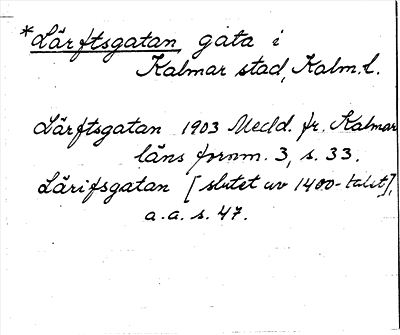 *Lärftsgatan, gata i
Kalmar stad, Kalm. l.
Lärftsgatan 1903 Medd. fr. Kalmar
läns fornm. 3, s. 33.
Lärifsgatan [slutet av 1400-talet],
a. a. s. 47.